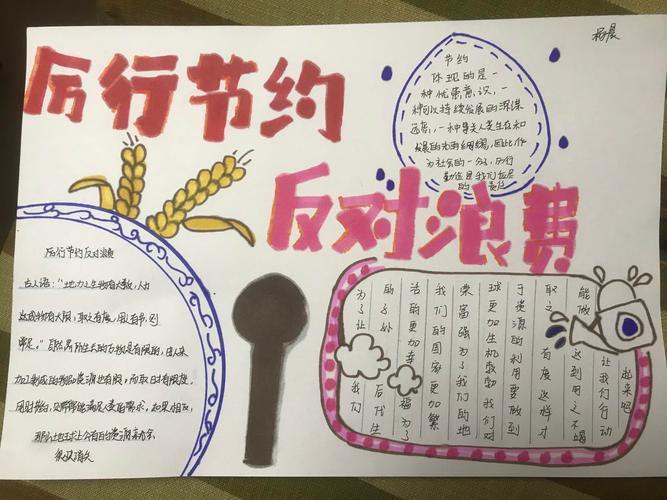 厉行节约
反对浪费
节约
体现的是一
种优患意识，一
种可以持续发展的深谋
远虑，一种寻求人类生存和
发展的未雨绸缪，因此作
为社会的一分子，厉行
勤俭是我们应尽
的责任
厉行节约反对浪费
古人语：“地力之生物有大数，人力
之成物有大限，取之有度，用之有节，则
常足。”自然界所生长的万物是有限的，由人来
加工制成的物品资源也有限，而取时有限度，
用时节约，则常常能满足人类的需求。如果相反，
那么地球上今有的资源
为了让我们
的子孙后代生
活的更加幸福为了
我们的国家更加繁
荣富强为了我们的地
球更加生机勃勃我们对
于资源的利用要做到
取之有度这样才
能做达到用之不竭
让我们行动
起来吧